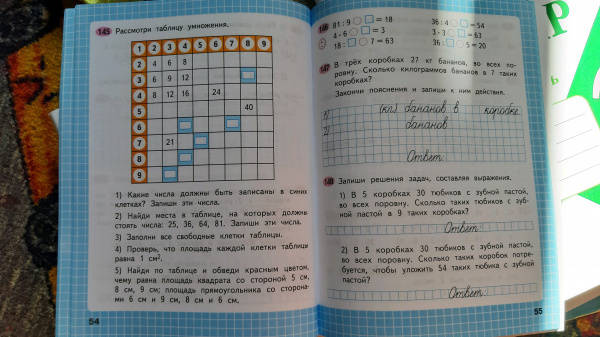 145 Рассмотри таблицу умножения.
1 2 3 4 5 6 7 8 9
2 4 6 8
3 6 9 12
4 8 12 16 24
5 40
6
7 21
8
9
1) Какие числа должны быть записаны в синих
клетках? Запиши эти числа.
2) Найди места в таблице, на которых должны
стоять числа: 25, 36, 64, 81. Запиши эти числа.
3) Заполни все свободные клетки таблицы.
4) Проверь, что площадь каждой клетки таблицы
равна 1 см².
5) Найди по таблице и обведи красным цветом,
чему равна площадь квадрата со стороной 5 см,
8 см, 9 см; площадь прямоугольника со сторона-
ми 6 см и 9 см, 8 см и 6 см.
54
146 81 : 9 = 18 36 : 4 = 54
4 · 6 = 3 3 · 3 = 63
18 : 7 = 63 36 : 5 = 20
147 В трёх коробках 27 кг бананов, во всех по-
ровну. Сколько килограммов бананов в 7 таких
коробках?
Закончи пояснения и запиши к ним действия.
1) (кг) бананов в коробке
2) бананов
Ответ:
148 Запиши решения задач, составляя выражения.
1) В 5 коробках 30 тюбиков с зубной пастой,
во всех поровну. Сколько таких тюбиков с зуб-
ной пастой в 9 таких коробках?
Ответ:
2) В 5 коробках 30 тюбиков с зубной пастой,
во всех поровну. Сколько таких коробок потре-
буется, чтобы уложить 54 таких тюбика с зубной
пастой?
Ответ:
55
Р